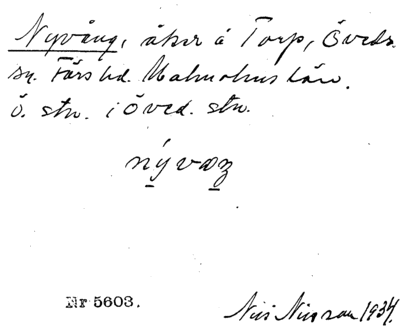 Nyvång, åker å Torp, Öveds
sn. Färs hd. Malmöhus län.
ö. stn. i Öved. stn.
nývaz
Nr 5603.
Nils Nilsson 1934.